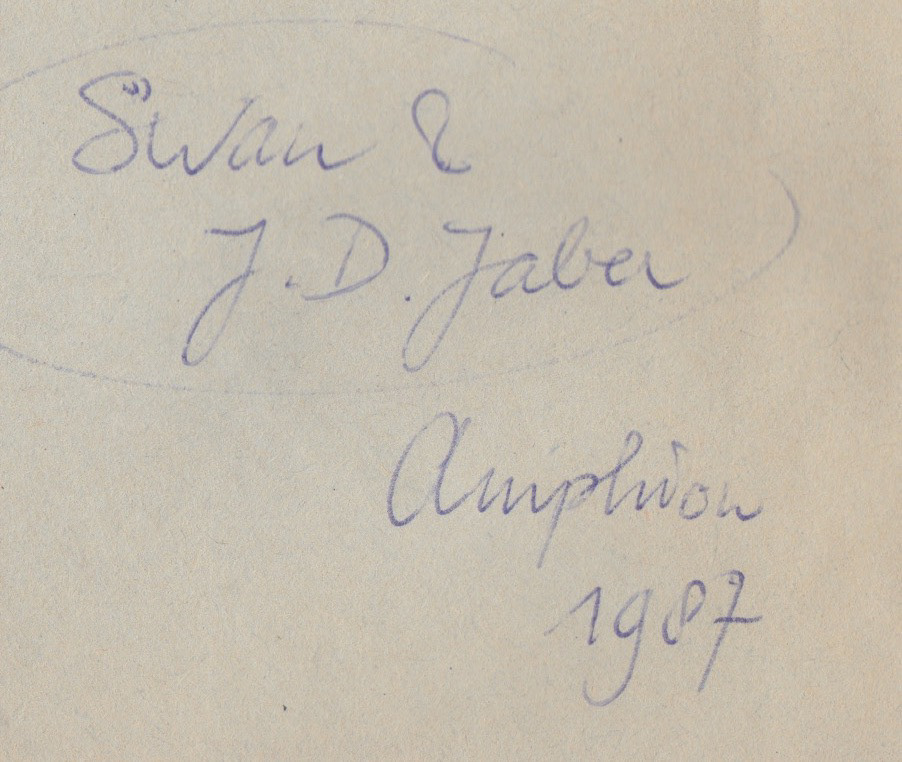 Swan &
J. D. Jaber
Amphion
1987